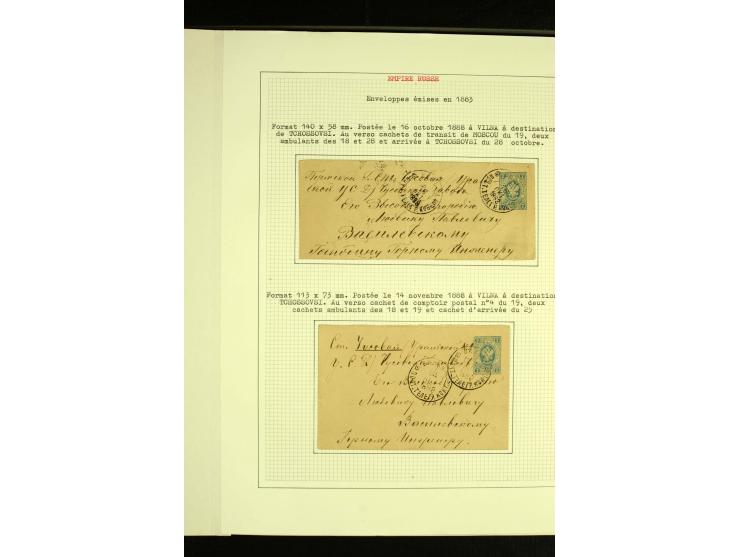 EMPIRE RUSSE
Enveloppes émises en 1883
Format 140 x 58 mm. Postée le 16 octobre 1888 à VILNA à destination
de TCHOSSOVSI. Au verso cachets de transit de MOSCOU du 19, deux
ambulants des 18 et 28 et arrivée à TCHOSSOVSI du 28 octobre.
Его
Любвику Павловичу
Василевскому
Горному Инженеру
Format 113 x 73 mm. Postée le 14 novembre 1888 à VILNA à destination
TCHOSSOVSI. Au verso cachet de comptoir postal n°4 du 19, deux
cachets ambulants des 18 et 19 et cachet d'arrivée du 25
Ст. Чусовая
Павловичу
Василевскому
Горному Инженеру.